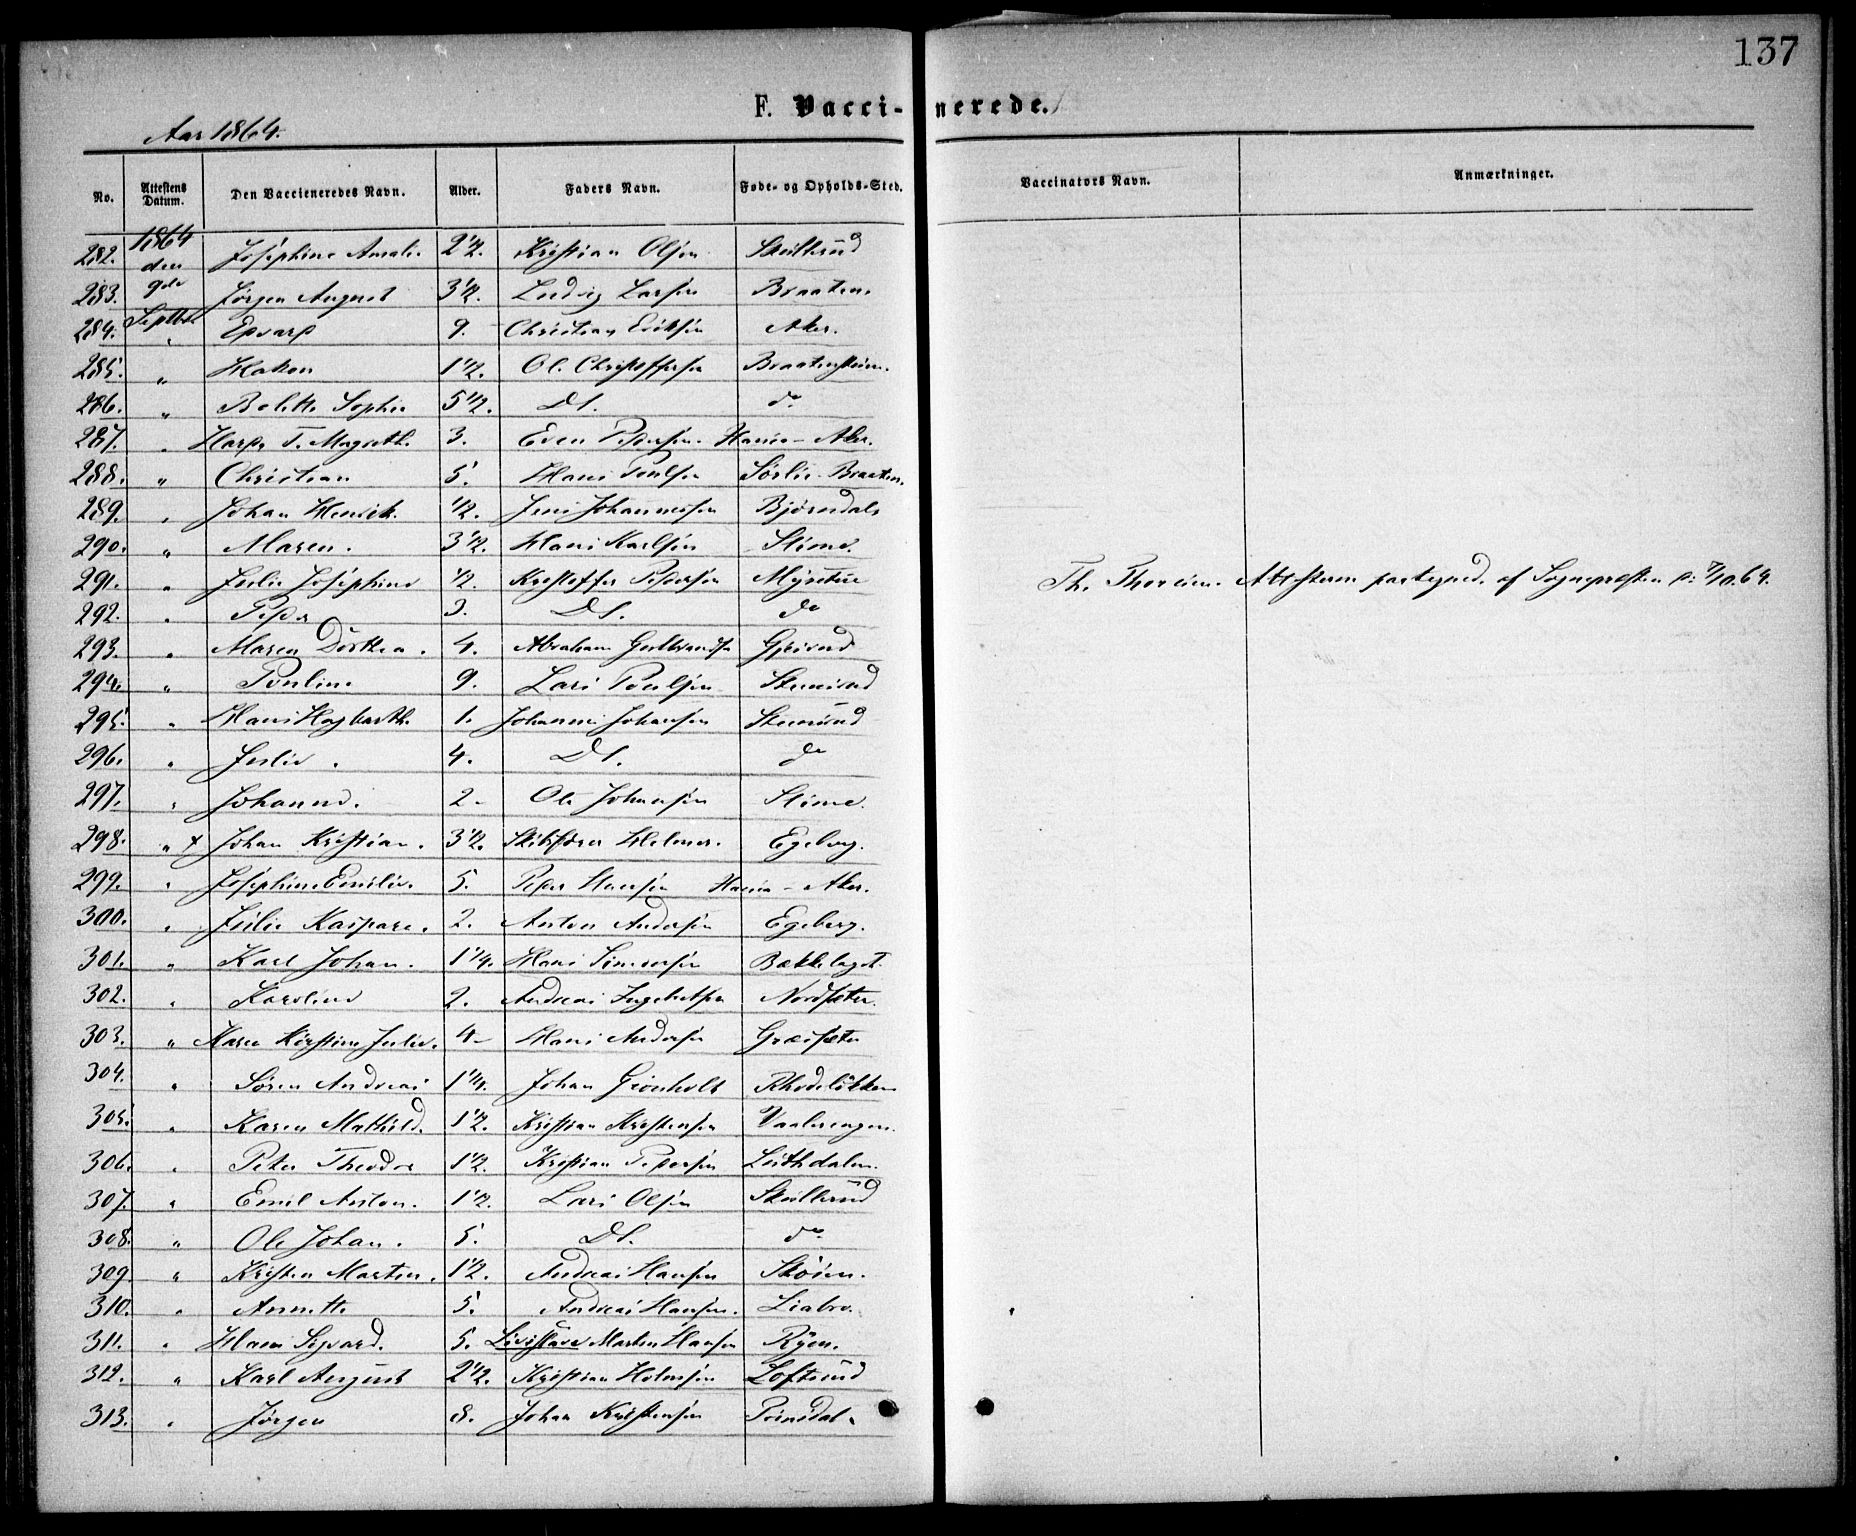 137
F. Vaccinerede.
Aar 1864.
No. Attestens Datum. Den Vaccieneredes Navn. Alder. Faders Navn. Føde- og Opholds-Sted. Vaccinators Navn. Anmærkninger.
1864
282. den Josephine Amalie 2 1/2. Kristian Olsen Skullerud
283. 9de Jørgen August 3 1/2. Ludvig Larsen Braaten.
284. Septbr. Edvard 9. Christian Eriksen Aker.
285. " Hakon 1 1/2. Ol. Christoffersen
286. " Bolette Sophie 5 1/2. Ds. do
287. " T. Magrethe. 3. Even Pedersen. Aker.
288. " Christian 5. Hans Poulsen Sørlie-Braaten.
289. " Johan Henrik. 1/2. Jens Johannessen Bjørndal
290. " Maren. 3 1/2. Hans Karlsen Stime.
291. " Julie Josephine 1/2. Kristoffer Pedersen Th. Attesterne af Sognepræsten 7/10.64.
292. " Peder 3. Ds. do
293. " Maren Dorthea. 4. Abraham Gulbrandsen Gjersrud
294. " Pouline 9. Lars Poulsen Stensrud
295. " Hans Hagbarth 1. Johannes Johansen Stensrud
296. " Julie. 4. Ds. do
297. " Johanne. 2- Ole Johansen Stime.
298. " + Johan Kristian. 3 1/2. Skibsfører Helmer. Egeberg.
299. " Josephine Emilie. 5. Peder Hansen Aker.
300. " Julie Kaspara. 2. Anton Andersen Egeberg.
301. " Karl Johan. 1 1/4. Hans Simensen Bækkelaget.
302. " Karoline 2. Andreas Ingebretsen Nordsæter.
303. " Karen Kirstine Julie. 4- Hans Andersen
304. " Søren Andreas 1 1/4. Johan Grønholt Rhodeløkken
305. " Karen Mathild. 1 1/2. Kristian Kristensen Vaalerengen.
306. " Peter Theodor 1 1/2. Kristian Pedersen
307. " Emil Anton. 1 1/2. Lars Olsen Skullerud
308. " Ole Johan. 5. Ds. do
309. " Kristen Martin. 1 1/2. Andreas Hansen Skøien.
310. " Annette 5. Andreas Hansen. Liabro.
311. " Hans Sigvard. 5. Martin Hansen Ryen.
312. " Karl August 2 1/2. Kristian Holmsen Loftsrud
313. " Jørgen 8. Johan Kristensen